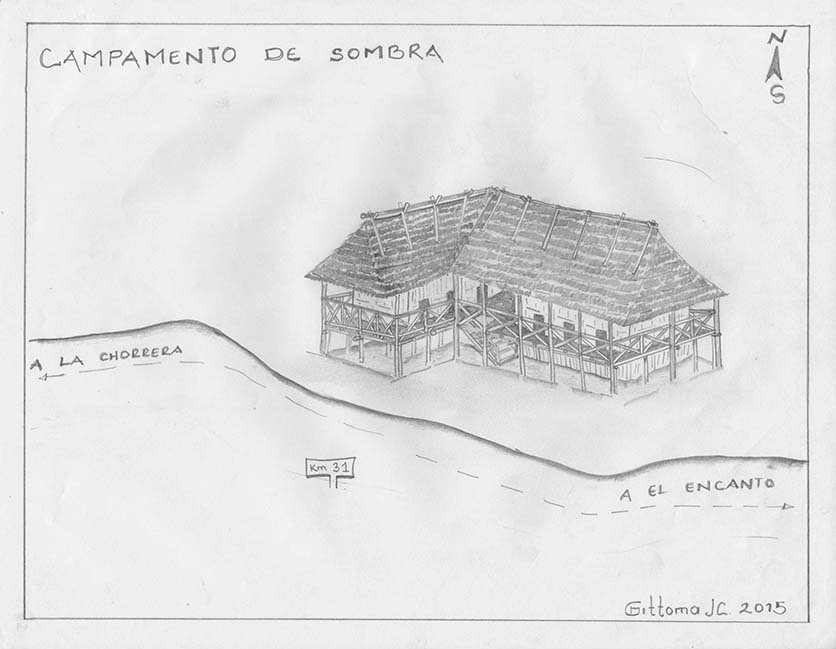 CAMPAMENTO DE SOMBRA
N
S
A LA CHORRERA
Km 31
A EL ENCANTO
Gittoma JC. 2015